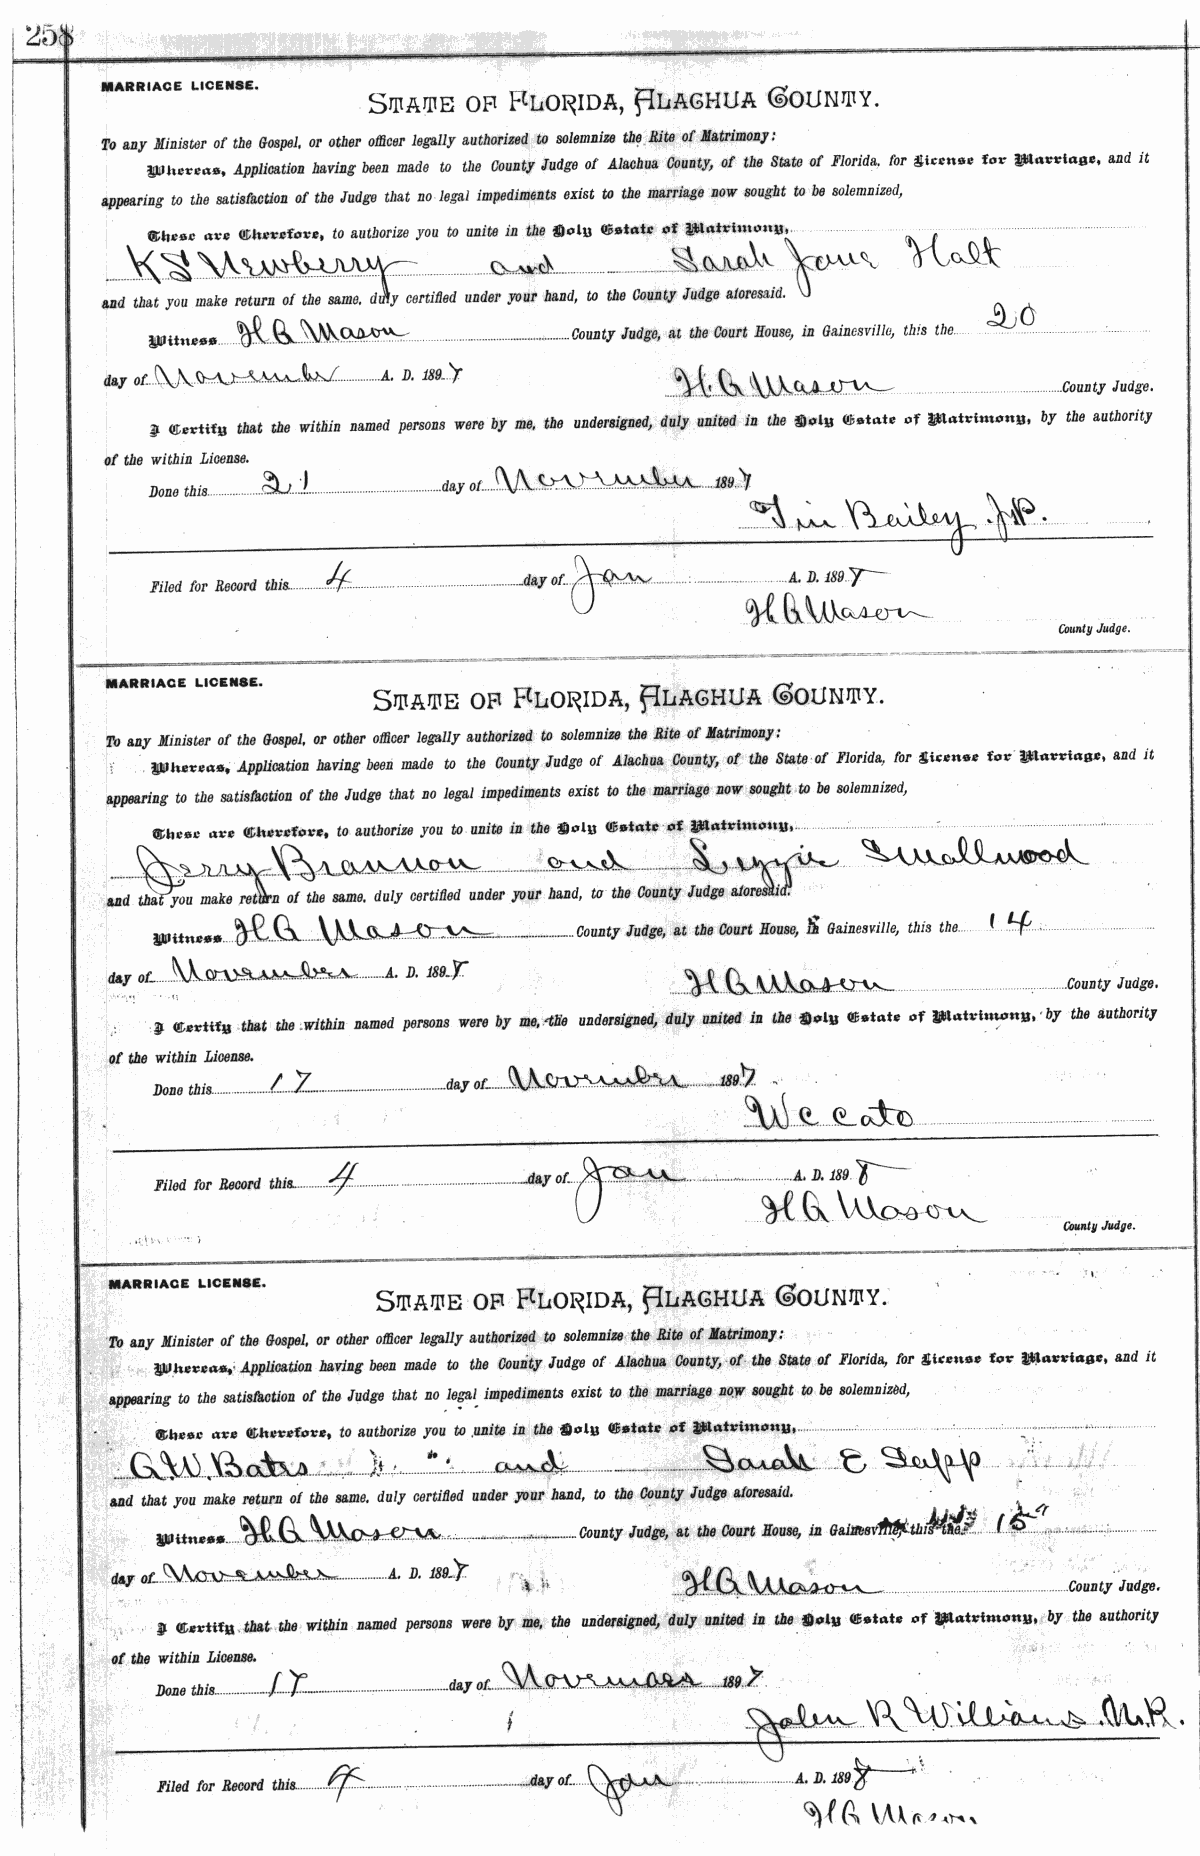 258
MARRIAGE LICENSE.
STATE OF FLORIDA, ALACHUA COUNTY.
To any Minister of the Gospel, or other officer legally authorized to solemnize the Rite of Matrimony:
Whereas, Application having been made to the County Judge of Alachua County, of the State of Florida, for License for Marriage, and it
appearing to the satisfaction of the Judge that no legal impediments exist to the marriage now sought to be solemnized,
These are Therefore, to authorize you to unite in the Holy Estate of Matrimony,
K S Newberry and Sarah Jane Halt
and that you make return of the same, duly certified under your hand, to the County Judge aforesaid.
Witness H G Mason County Judge, at the Court House, in Gainesville, this the 20
day of November A. D. 1897
H. G Mason County Judge.
I Certify that the within named persons were by me, the undersigned, duly united in the Holy Estate of Matrimony, by the authority
of the within License.
Done this 21 day of November 1897
Tim Bailey J.P.
Filed for Record this 4 day of Jan A. D. 1898
H G Mason
County Judge.
MARRIAGE LICENSE.
STATE OF FLORIDA, ALACHUA COUNTY.
To any Minister of the Gospel, or other officer legally authorized to solemnize the Rite of Matrimony:
Whereas, Application having been made to the County Judge of Alachua County, of the State of Florida, for License for Marriage, and it
appearing to the satisfaction of the Judge that no legal impediments exist to the marriage now sought to be solemnized,
These are Therefore, to authorize you to unite in the Holy Estate of Matrimony,
Jerry Brannon and Lizzie Smallwood
and that you make return of the same, duly certified under your hand, to the County Judge aforesaid.
Witness H G Mason County Judge, at the Court House, in Gainesville, this the 14
day of November A. D. 1897
H G Mason County Judge.
I Certify that the within named persons were by me, the undersigned, duly united in the Holy Estate of Matrimony, by the authority
of the within License.
Done this 17 day of November 1897
W C Cato
Filed for Record this 4 day of Jan A. D. 1898
H G Mason
County Judge.
MARRIAGE LICENSE.
STATE OF FLORIDA, ALACHUA COUNTY.
To any Minister of the Gospel, or other officer legally authorized to solemnize the Rite of Matrimony:
Whereas, Application having been made to the County Judge of Alachua County, of the State of Florida, for License for Marriage, and it
appearing to the satisfaction of the Judge that no legal impediments exist to the marriage now sought to be solemnized,
These are Therefore, to authorize you to unite in the Holy Estate of Matrimony,
G. W. Bates and Sarah E Sapp
and that you make return of the same, duly certified under your hand, to the County Judge aforesaid.
Witness H G Mason County Judge, at the Court House, in Gainesville, this the 15"
day of November A. D. 1897
H G Mason County Judge.
I Certify that the within named persons were by me, the undersigned, duly united in the Holy Estate of Matrimony, by the authority
of the within License.
Done this 17 day of November 1897
John R Williams. M.R.
Filed for Record this 4 day of Jan A. D. 1898
H G Mason